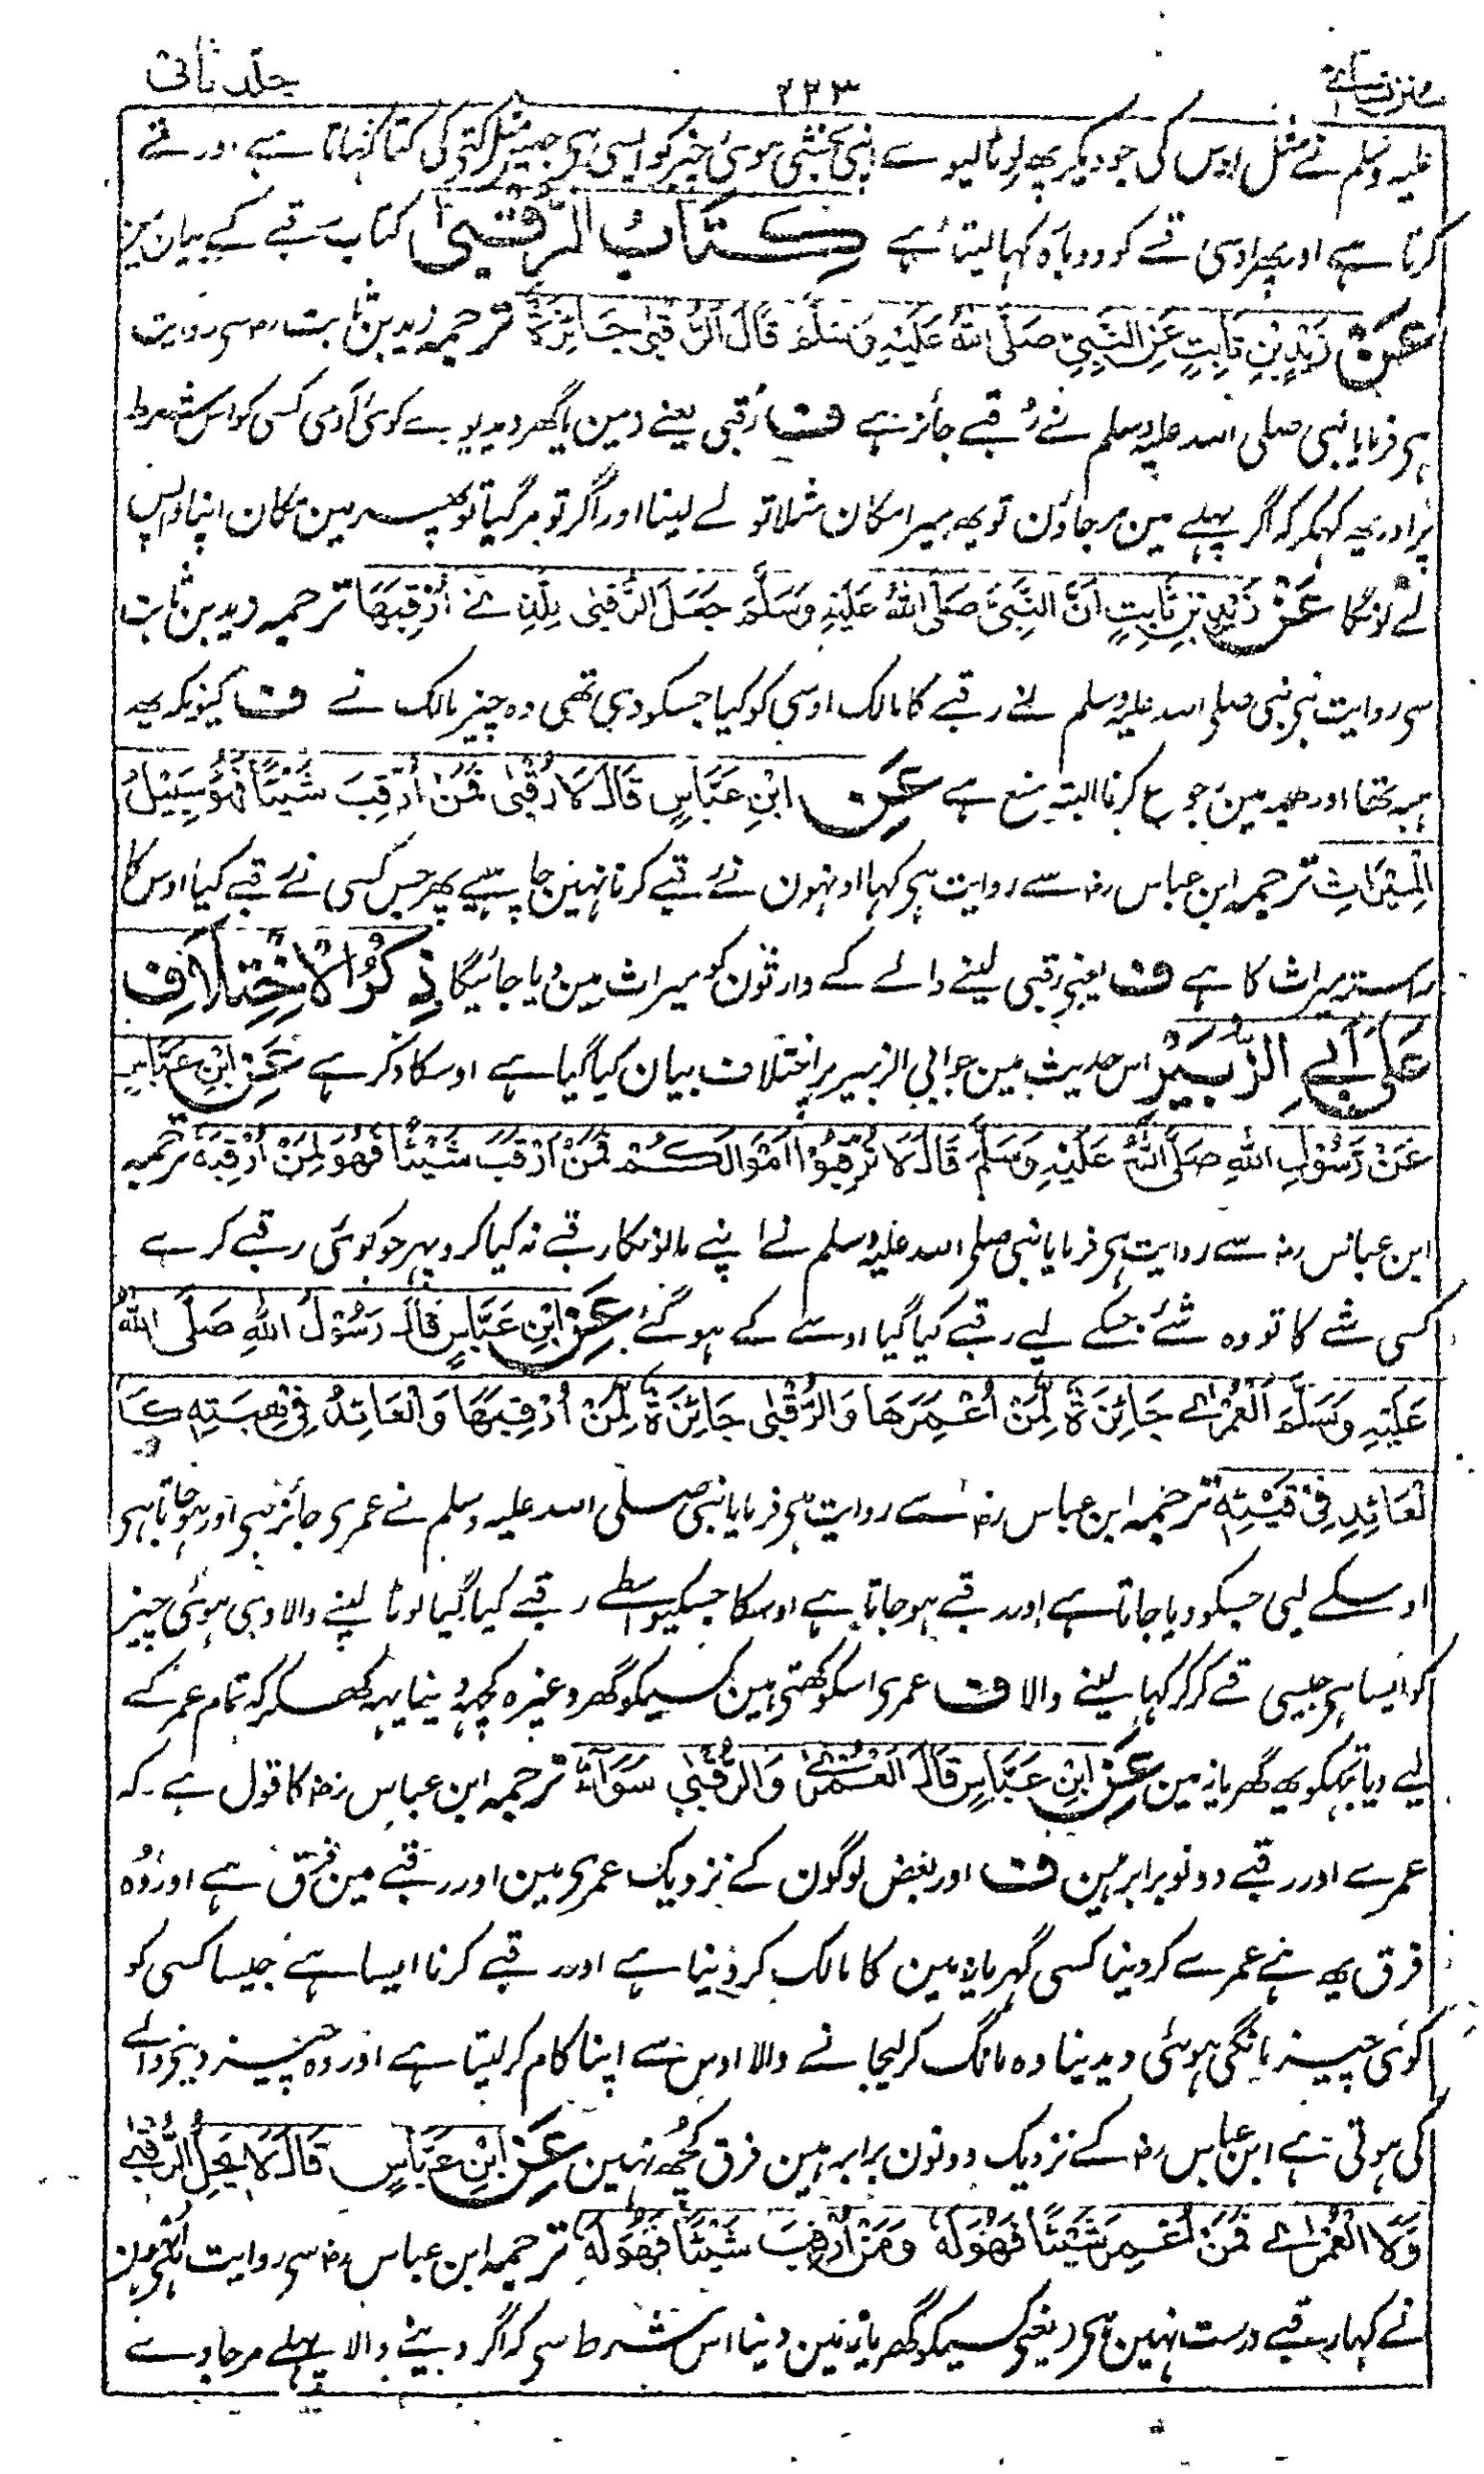 سنن نسائے ۲۲۳ جلد ثانی
علیہ وسلم نے مثل اوس کی جو دیکر پھر لوٹا لیوے اپنی بخشی ہوئی چیز کو ایسی ہی جیسے مثل کتی کی کتا کہاتا ہے اور قے
کرتا ہے اور پھر اوسی قے کو دوبارہ کہا لیتا ہے كِتَابُ الرُّقْبٰى کتاب رقبے کے بیان مین
عَنْ زَيْدِ بْنِ ثَابِتٍ عَنِ النَّبِيِّ صَلَّى اللهُ عَلَيْهِ وَسَلَّمَ قَالَ الرُّقْبٰى جَائِزَةٌ ترجمہ زید بن ثابت رض سی روایت
ہی فرمایا نبی صلی اللہ علیہ وسلم نے رُقبے جائز ہے ف رُقبی یعنے زمین یا گھر دیدیوے کوئی آدمی کسی کو اس شرط
پر اور یہ کہکر کہ اگر پہلے مین مرجاؤن تو یہ میرا مکان مثلا تو لے لینا اور اگر تو مرگیا تو پھر مین مکان اپنا واپس
لے لونگا عَنْ زَيْدِ بْنِ ثَابِتٍ اَنَّ النَّبِيَّ صَلَّى اللهُ عَلَيْهِ وَسَلَّمَ جَعَلَ الرُّقْبٰى لِلَّذِيْ اُرْقِبَهَا ترجمہ زید بن ثابت
سی روایت ہی نبی صلی اللہ علیہ وسلم نے رقبے کا مالک اوسی کو کیا جسکو دی تھی وہ چیز مالک نے ف کیونکہ یہ
ہبہ تھا اور ہبہ مین رجوع کرنا البتہ منع ہے عَنِ ابْنِ عَبَّاسٍ قَالَ لَا رُقْبٰى فَمَنْ اُرْقِبَ شَيْئًا فَهُوَ سَبِيْلُ
الْمِيْرَاثِ ترجمہ ابن عباس رض سے روایت ہی کہا اونہون نے رقبے کرنا نہین چاہیے پھر جس کسی نے رقبے کیا اوس کا
رستہ میراث کا ہے ف یعنی رقبی لینے والے کے وارثون کو میراث مین دیا جائیگا ذِكْرُ الْاِخْتِلَافِ
عَلٰى اَبِي الزُّبَيْرِ اس حدیث مین جو ابی الزبیر پر اختلاف بیان کیا گیا ہے اوسکا ذکر ہے عَنِ ابْنِ عَبَّاسٍ
عَنْ رَسُوْلِ اللهِ صَلَّى اللهُ عَلَيْهِ وَسَلَّمَ قَالَ لَا تُرْقِبُوْا اَمْوَالَكُمْ فَمَنْ اَرْقَبَ شَيْئًا فَهُوَ لِمَنْ اُرْقِبَهٗ ترجمہ
ابن عباس رض سے روایت ہی فرمایا نبی صلی اللہ علیہ وسلم نے اپنے مالونکا رقبے نہ کیا کرو پہر جو کوئی رقبے کرے
کسی شے کا تو وہ شے جسکے لیے رقبے کیا گیا اوسے کے ہو گئے عَنِ ابْنِ عَبَّاسٍ قَالَ رَسُوْلُ اللهِ صَلَّى اللهُ
عَلَيْهِ وَسَلَّمَ اَلْعُمْرٰى جَائِزَةٌ لِّمَنْ اُعْمِرَهَا وَالرُّقْبٰى جَائِزَةٌ لِّمَنْ اُرْقِبَهَا وَالْعَائِدُ فِيْ هِبَتِهٖ كَا
لْعَائِدِ فِيْ قَيْئِهٖ ترجمہ ابن عباس رض سے روایت ہی فرمایا نبی صلی اللہ علیہ وسلم نے عمری جائز ہی اور ہو جاتا ہی
اوسکے لیی جسکو دیا جاتا ہے اور رقبے ہو جاتا ہے اوسکا جسکیواسطے رقبے کیا گیا لوٹا لینے والا دی ہوئی چیز
کو ایسا ہی جیسی قے کر کر کہا لینے والا ف عمری اسکو کھتی ہین کسیکو گھر وغیرہ کچھہ دینا یہہ کھہکر کہ تمام عمر کے
لیے دیا تجکو یہ گھر یا زمین عَنِ ابْنِ عَبَّاسٍ قَالَ الْعُمْرٰى وَالرُّقْبٰى سَوَآءٌ ترجمہ ابن عباس رض کا قول ہے کہ
عمرے اور رقبے دونو برابر ہین ف اور بعض لوگون کے نزدیک عمری مین اور رقبے مین فرق ہے اور وہ
فرق یہ ہے عمرے کر دینا کسی گہر یا زمین کا مالک کر دینا ہے اور رقبے کرنا ایسا ہے جیسا کسی کو
کوئی چیز مانگی ہوئی دیدینا وہ مانگ کر لیجانے والا اوس سے اپنا کام کر لیتا ہے اور وہ چیز دینے والے
کی ہوتی ہے ابن عباس رض کے نزدیک دونون برابر ہین فرق کچھ نہین عَنِ ابْنِ عَبَّاسٍ قَالَ لَا يَحِلُّ الرُّقْبٰى
وَلَا الْعُمْرٰى فَمَنْ اُعْمِرَ شَيْئًا فَهُوَ لَهٗ وَمَنْ اُرْقِبَ شَيْئًا فَهُوَ لَهٗ ترجمہ ابن عباس رض سی روایت ہی
نے کہا رقبے درست نہین ہی یعنی کسیکو گھر یا زمین دینا اس شرط سی کہ اگر دینے والا پہلے مرجاوے